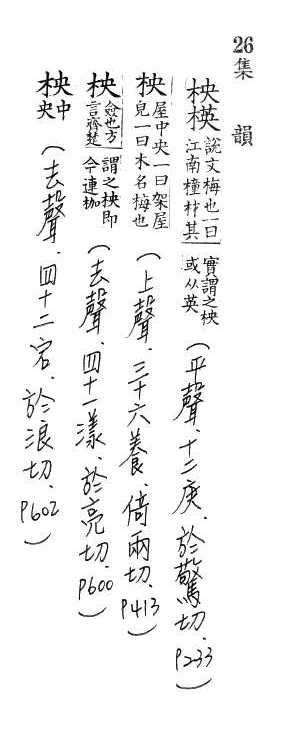 26集 韻
柍楧 說文梅也一曰江南橦材其實謂之柍或从英（平聲．十二庚．於驚切．P233）
柍 屋中央一曰架屋皃一曰木名梅也（上聲．三十六養．倚兩切．P413）
柍 僉也方言齊楚謂之柍即今連枷（去聲．四十一漾．於亮切．P600）
柍 中央（去聲．四十二宕．於浪切．P602）